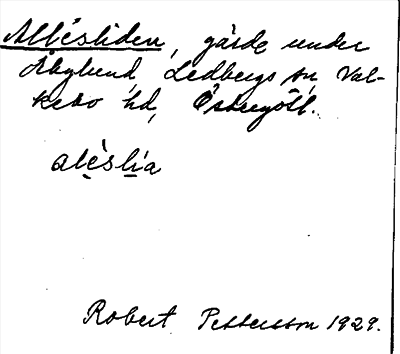 Allésliden, gärde under
Åbylund, Ledbergs sn, Val-
kebo hd, Östergötl.
aléslía
Robert Pettersson 1929.